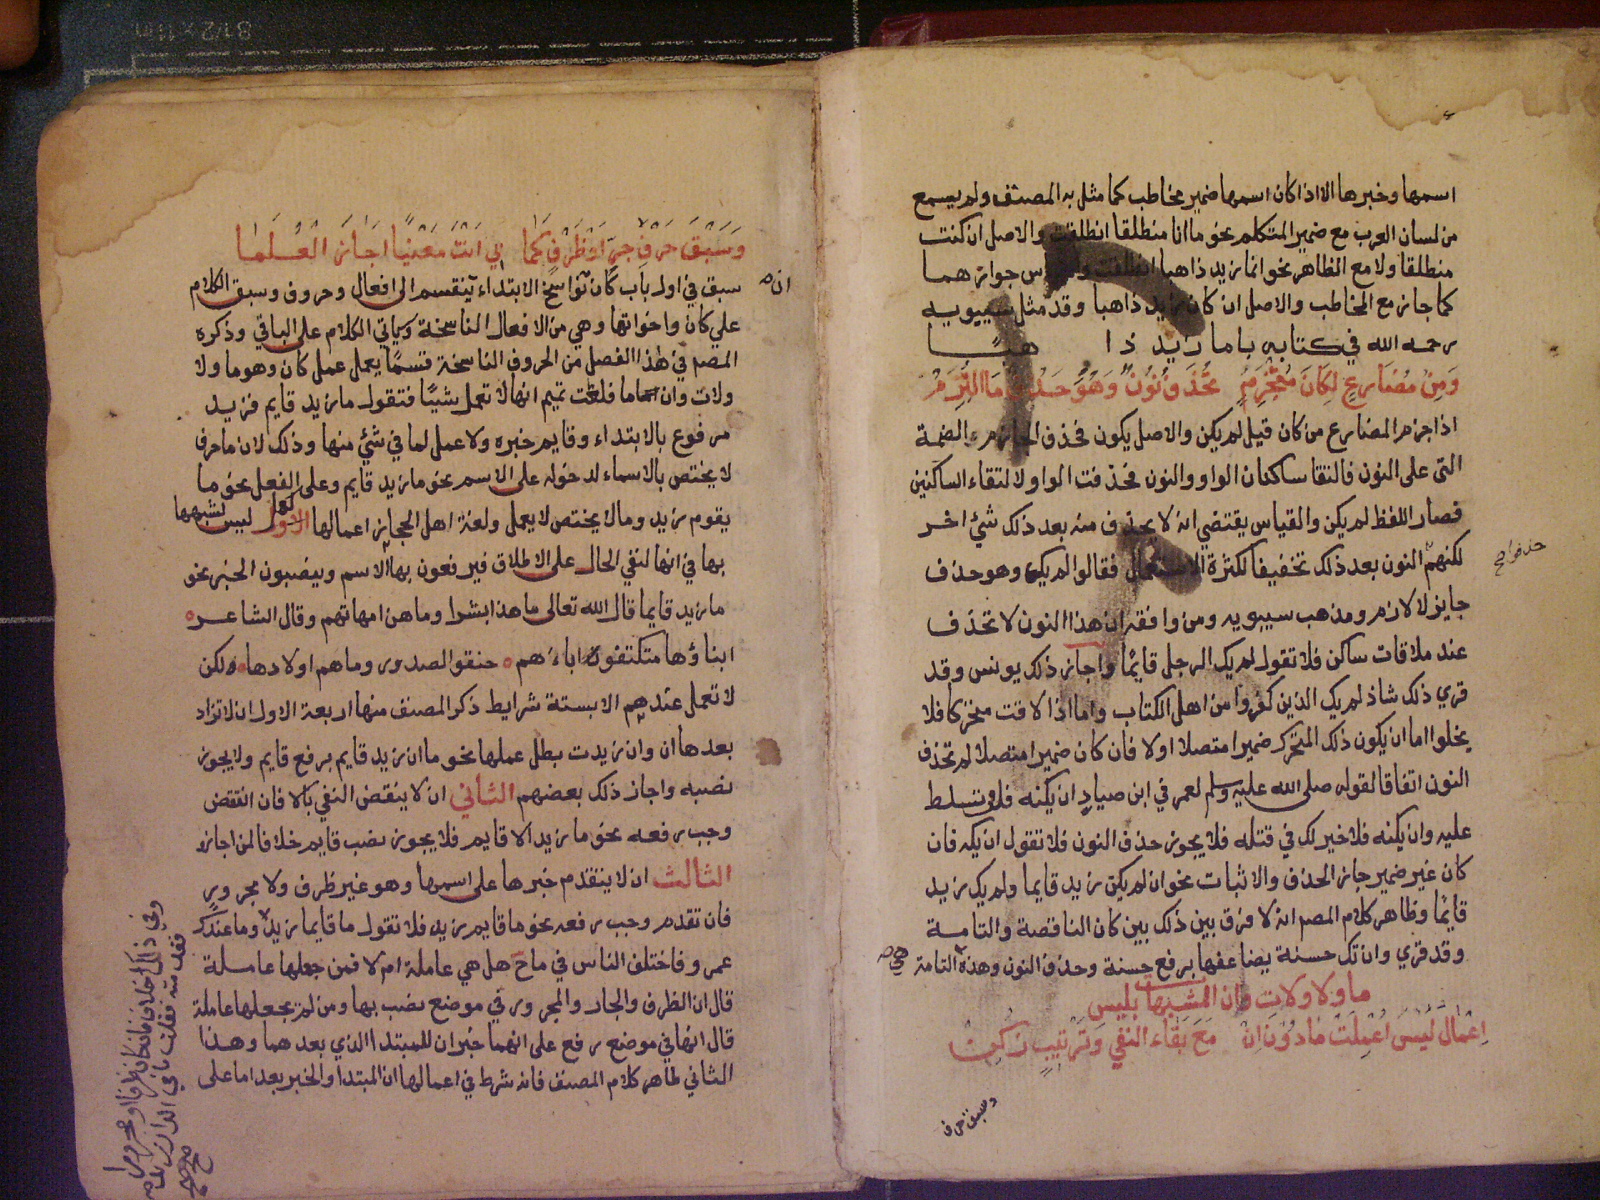 اسمها وخبرها الا اذا كان اسمها ضمير مخاطب كما مثل به المصنف ولم يسمع
من لسان العرب مع ضمير المتكلم نحو ما انا منطلقا انطلقت والاصل ان كنت
منطلقا ولا مع الظاهر نحو اما زيد ذاهبا انطلقت جوازهما
كما جاز مع المخاطب والاصل ان كان زيد ذاهبا وقد مثل سيبويه
رحمه الله في كتابه باما زيد ذا هبًا
وَمِنْ مُضَارِعٍ لِكَانَ مُنْجَزِمْ تُحْذَفُ نُونٌ وَهُوَ حَذْفٌ مَا الْتُزِمْ
اذا جزم المضارع من كان قيل لم يكن والاصل يكون فحذف الجازم الضمة
التى على النون فالتقا ساكنان الواو والنون فحذفت الواو لالتقاء الساكنين
فصار اللفظ لم يكن والقياس يقتضي انه لا يحذف منه بعد ذلك شئ اخر
لكنهم النون بعد ذلك تخفيفا لكثرة الاستعمال فقالوا لم يك وهو حذف
حذفوا صح
جايز لا لازم ومذهب سيبويه ومن وافقه ان هذا النون لا تحذف
عند ملاقات ساكن فلا تقول لم يك الرجل قائما واجاز ذلك يونس وقد
قري ذلك شاذ لم يك الذين كفروا من اهل الكتاب واما اذا لاقت متحركا فلا
يخلوا اما ان يكون ذلك المتحرك ضميرا متصلا اولا فان كان ضميرا متصلا لم تحذف
النون اتفاقا لقوله صلى الله عليه وسلم لعمر في ابن صياد ان يكنه فلن تسلط
عليه وان يكنه فلا خير لك في قتله فلا يجوز حذف النون فلا تقول ان يكه فان
كان غير ضمير جاز الحذف والاثبات نحو ان لم يكن زيد قايما ولم يك زيد
قائما وظاهر كلام المصم انه لا فرق بين ذلك بين كان الناقصة والتامة
وقد قري وان تك حسنة يضاعفها برفع حسنة وحذف النون وهذه التامة
هي صح
ما ولا ولات وان المشبها بليس
اِعْمَالَ لَيْسَ اُعْمِلَتْ مَا دُوْنَ اِنْ مَعَ بَقَاءِ النفيِ وَتَرْتِيبٍ زُكِنْ
وسبق حرف
وَسَبْقَ حَرْفِ جَرٍّ اَوْ ظَرْفٍ كَمَا بي اَنْتَ مَعْنِيًا اجَازَ الْعُلَمَا
سبق في اول باب كان نواسخ الابتداء تنقسم الى افعال وحروف وسبق الكلام
ان صح
علي كان واخواتها وهي من الافعال الناسخة وسياتي الكلام على الباقي وذكره
المصم في هذا الفصل من الحروف الناسخة قسمًا يعمل عمل كان وهو ما ولا
ولات وان اما ما فلغت تميم انها لا تعمل شيئًا فتقول ما زيد قايم فزيد
مرفوع بالابتداء وقايم خبره ولا عمل لما في شئ منها وذلك لان ما حرف
لا يختص بالاسماء لدخوله على الاسم نحو ما زيد قايم وعلى الفعل نحو ما
يقوم زيد وما لا يختص لا يعمل ولغة اهل الحجاز اعمالها ليس لشبهها
بها في انها لنفي الحال على الاطلاق فيرفعون بها الاسم وينصبون الخبر نحو
ما زيد قايما قال الله تعالى ما هذا بشرا وما هن امهاتهم وقال الشاعر
ابناؤها متكنفون اباءهم حنقوا الصدور وما هم اولادها ولكن
لا تعمل عندهم الا بستة شرايط ذكر المصنف منها اربعة الاول ان لا تزاد
بعدها ان وان زيدت بطل عملها نحو ما ان زيد قايم برفع قايم ولا يجوز
نصبه واجاز ذلك بعضهم الثاني ان لا ينقض النفي بالا فان انتقض
وجب رفعه نحو ما زيد الا قايم فلا يجوز نصب قايم خلافا لمن اجازه
الثالث ان لا يتقدم خبرها على اسمها وهو غير ظرف ولا مجرور
فان تقدم وجب رفعه نحو ما قايم زيد فلا تقول ما قايما زيد وما عندك
عمرو فاختلف الناس في ما ح هل هي عاملة ام لا فمن جعلها عاملة
قال ان الظرف والجار والمجرور في موضع نصب بها ومن لم يجعلها عاملة
قال انها في موضع رفع على انهما خبران للمبتدا الذي بعدهما وهذا
الثاني ظاهر كلام المصنف فانه شرط في اعمالها ان المبتدا والخبر بعد ما على